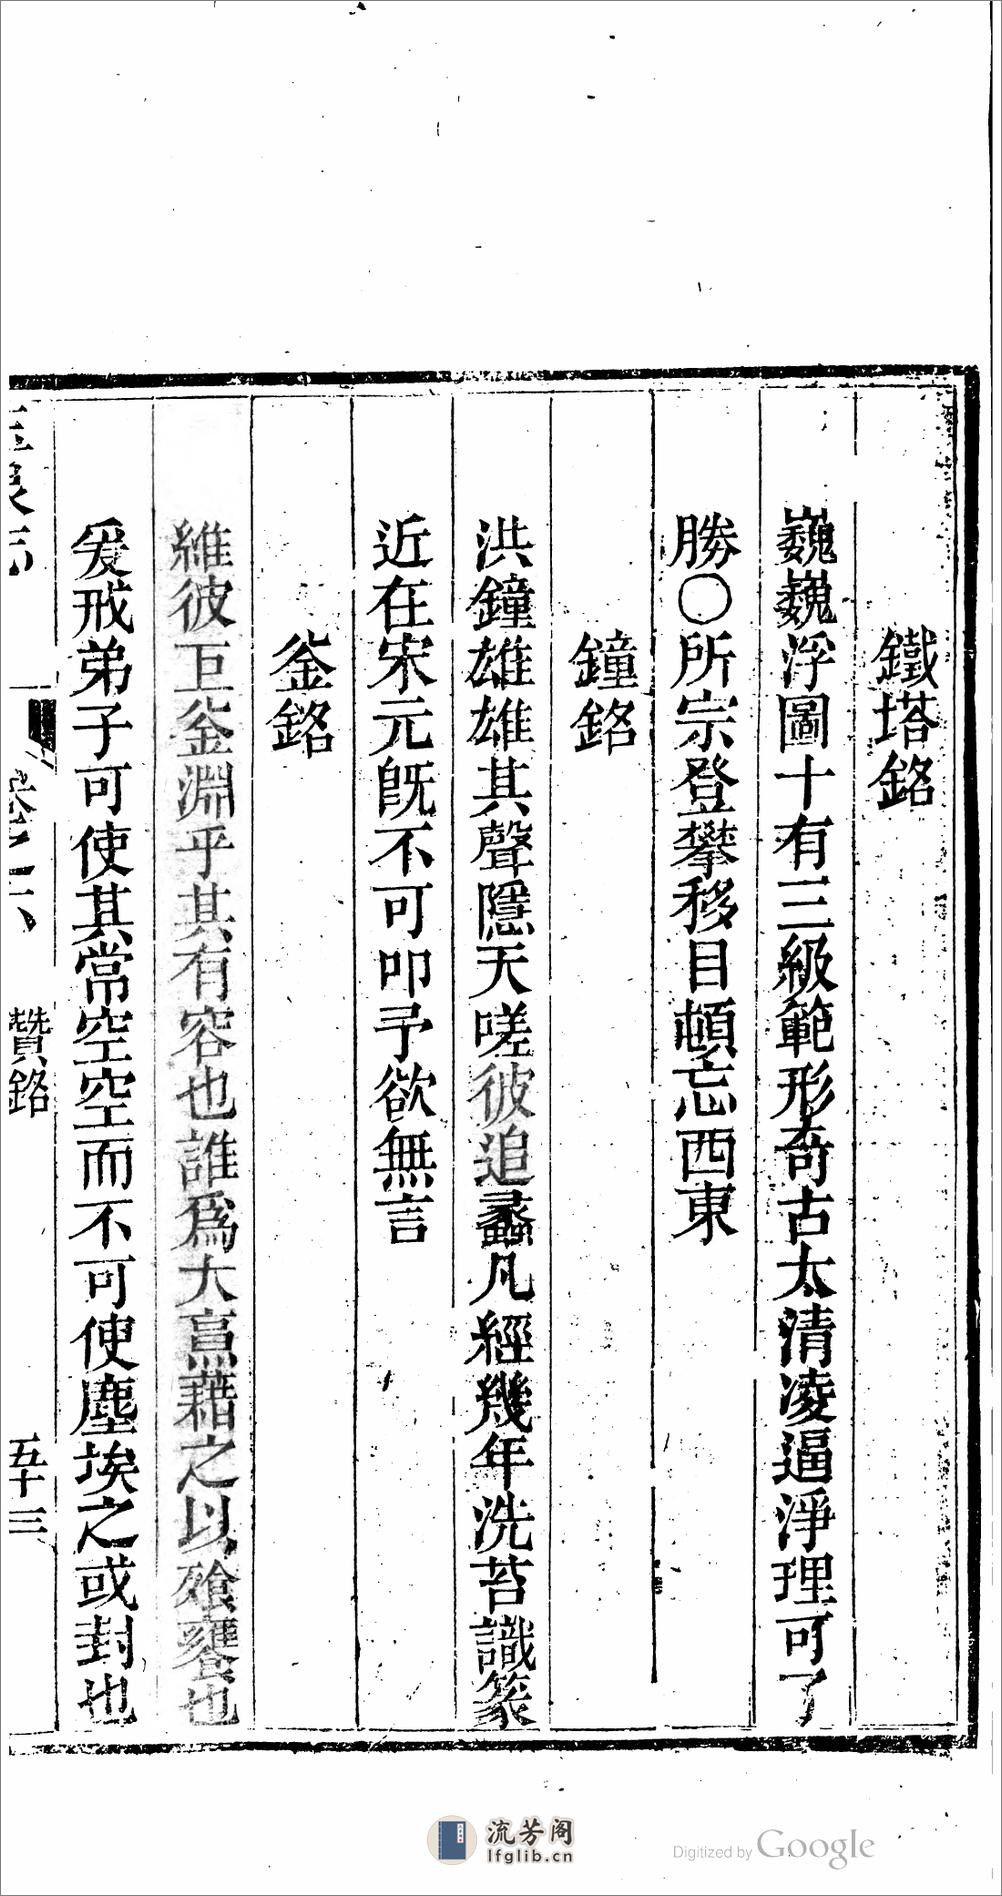 鐵塔銘
巍巍浮圖十有三級範形奇古太清凌逼淨理可了
勝〇所宗登攀移目頓忘西東
鐘銘
洪鐘雄雄其聲隱天嗟彼追蠡凡經幾年洗苔識篆
近在宋元既不可叩予欲無言
釜銘
維彼巨釜淵乎其有容也誰爲大烹藉之以飱饔也
爰戒弟子可使其常空空而不可使塵埃之或封也
玉泉志
卷之六
贊銘
五十三
流芳阁
lfglib.cn
Digitized by Google